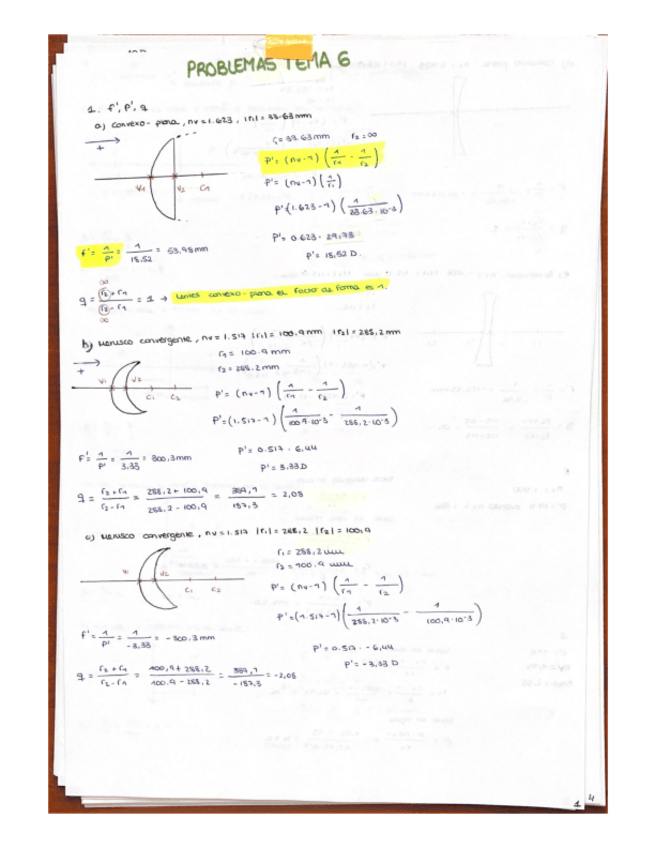 PROBLEMAS TEMA 6
1. f', P', q
a) Convexo-plana, nv = 1.623, |r1| = 33.63mm
r1 = 33.63mm r2 = ∞
P' = (nv-1) (1/r1 - 1/r2)
P' = (nv-1) (1/r1)
P' (1.623-1) (1/33.63·10⁻³)
P' = 0.623 · 29,73
P' = 18,52 D.
+
V1 V2 C1
f' = 1/P' = 1/18.52 = 53,98mm
q = (r2 + r1)/(r2 - r1) = 1 → Lentes convexo-plana el factor de forma es 1.
∞
∞
b) Menisco convergente, nv = 1.517 |r1| = 100.9mm |r2| = 288,2mm
r1 = 100.9mm
r2 = 288.2mm
+
V1 V2 C1 C2
P' = (nv-1) (1/r1 - 1/r2)
P' = (1.517-1) (1/100.9·10⁻³ - 1/288,2·10⁻³)
P' = 0.517 · 6,44
P' = 3.33D
f' = 1/P' = 1/3,33 = 300,3mm
q = (r2 + r1)/(r2 - r1) = (288,2 + 100,9)/(288.2 - 100,9) = 389,1/187,3 = 2,08
c) Menisco convergente, nv = 1.517 |r1| = 288,2 |r2| = 100,9
r1 = 288,2mm
r2 = 100.9mm
V1 V2 C1 C2
P' = (nv-1) (1/r1 - 1/r2)
P' = (1.517-1) (1/288,2·10⁻³ - 1/100,9·10⁻³)
P' = 0.517 · -6,44
P' = -3,33 D
f' = 1/P' = 1/-3,33 = -300.3mm
q = (r2 + r1)/(r2 - r1) = (100,9 + 288,2)/(100.9 - 288,2) = 389,1/-187,3 = -2,08
1